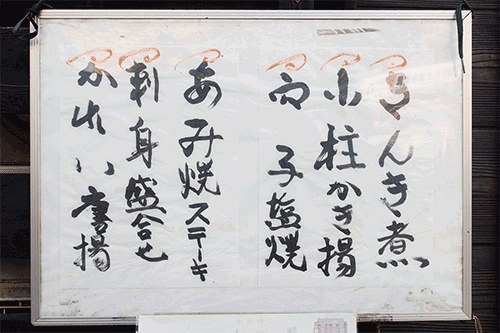 きんき煮
小柱かき揚
白子塩焼
あみ焼ステーキ
刺身盛合せ
かれい唐揚